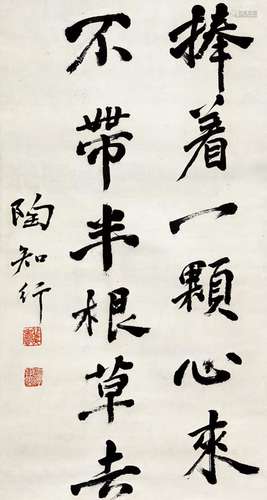 捧着一顆心来
不帶半根草去
陶知行